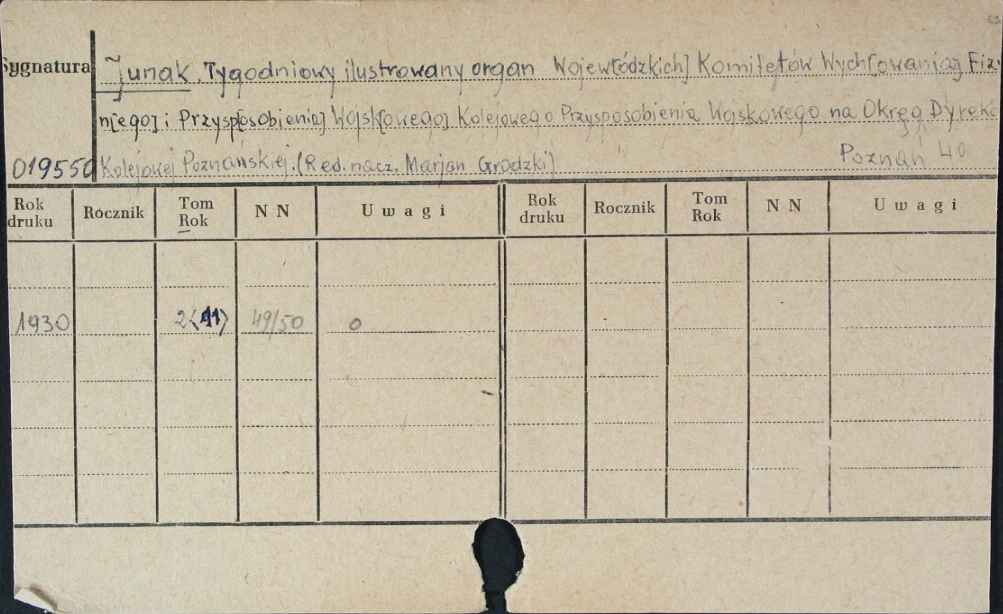 Sygnatura Junak. Tygodniowy ilustrowany organ Wojew[ódzkich] Komitetów Wych[owania] Fizy
n[ego] i Przysp[osobienia] Wojsk[owego] Kolejowego Przysposobienia Wojskowego na Okręg Dyrekc
019550 Kolejowej Poznańskiej. (Red. nacz. Marjan Grodzki) Poznań 4°
Rok druku Rocznik Tom Rok N N Uwagi Rok druku Rocznik Tom Rok N N Uwagi
1930 2(11) 49/50 0